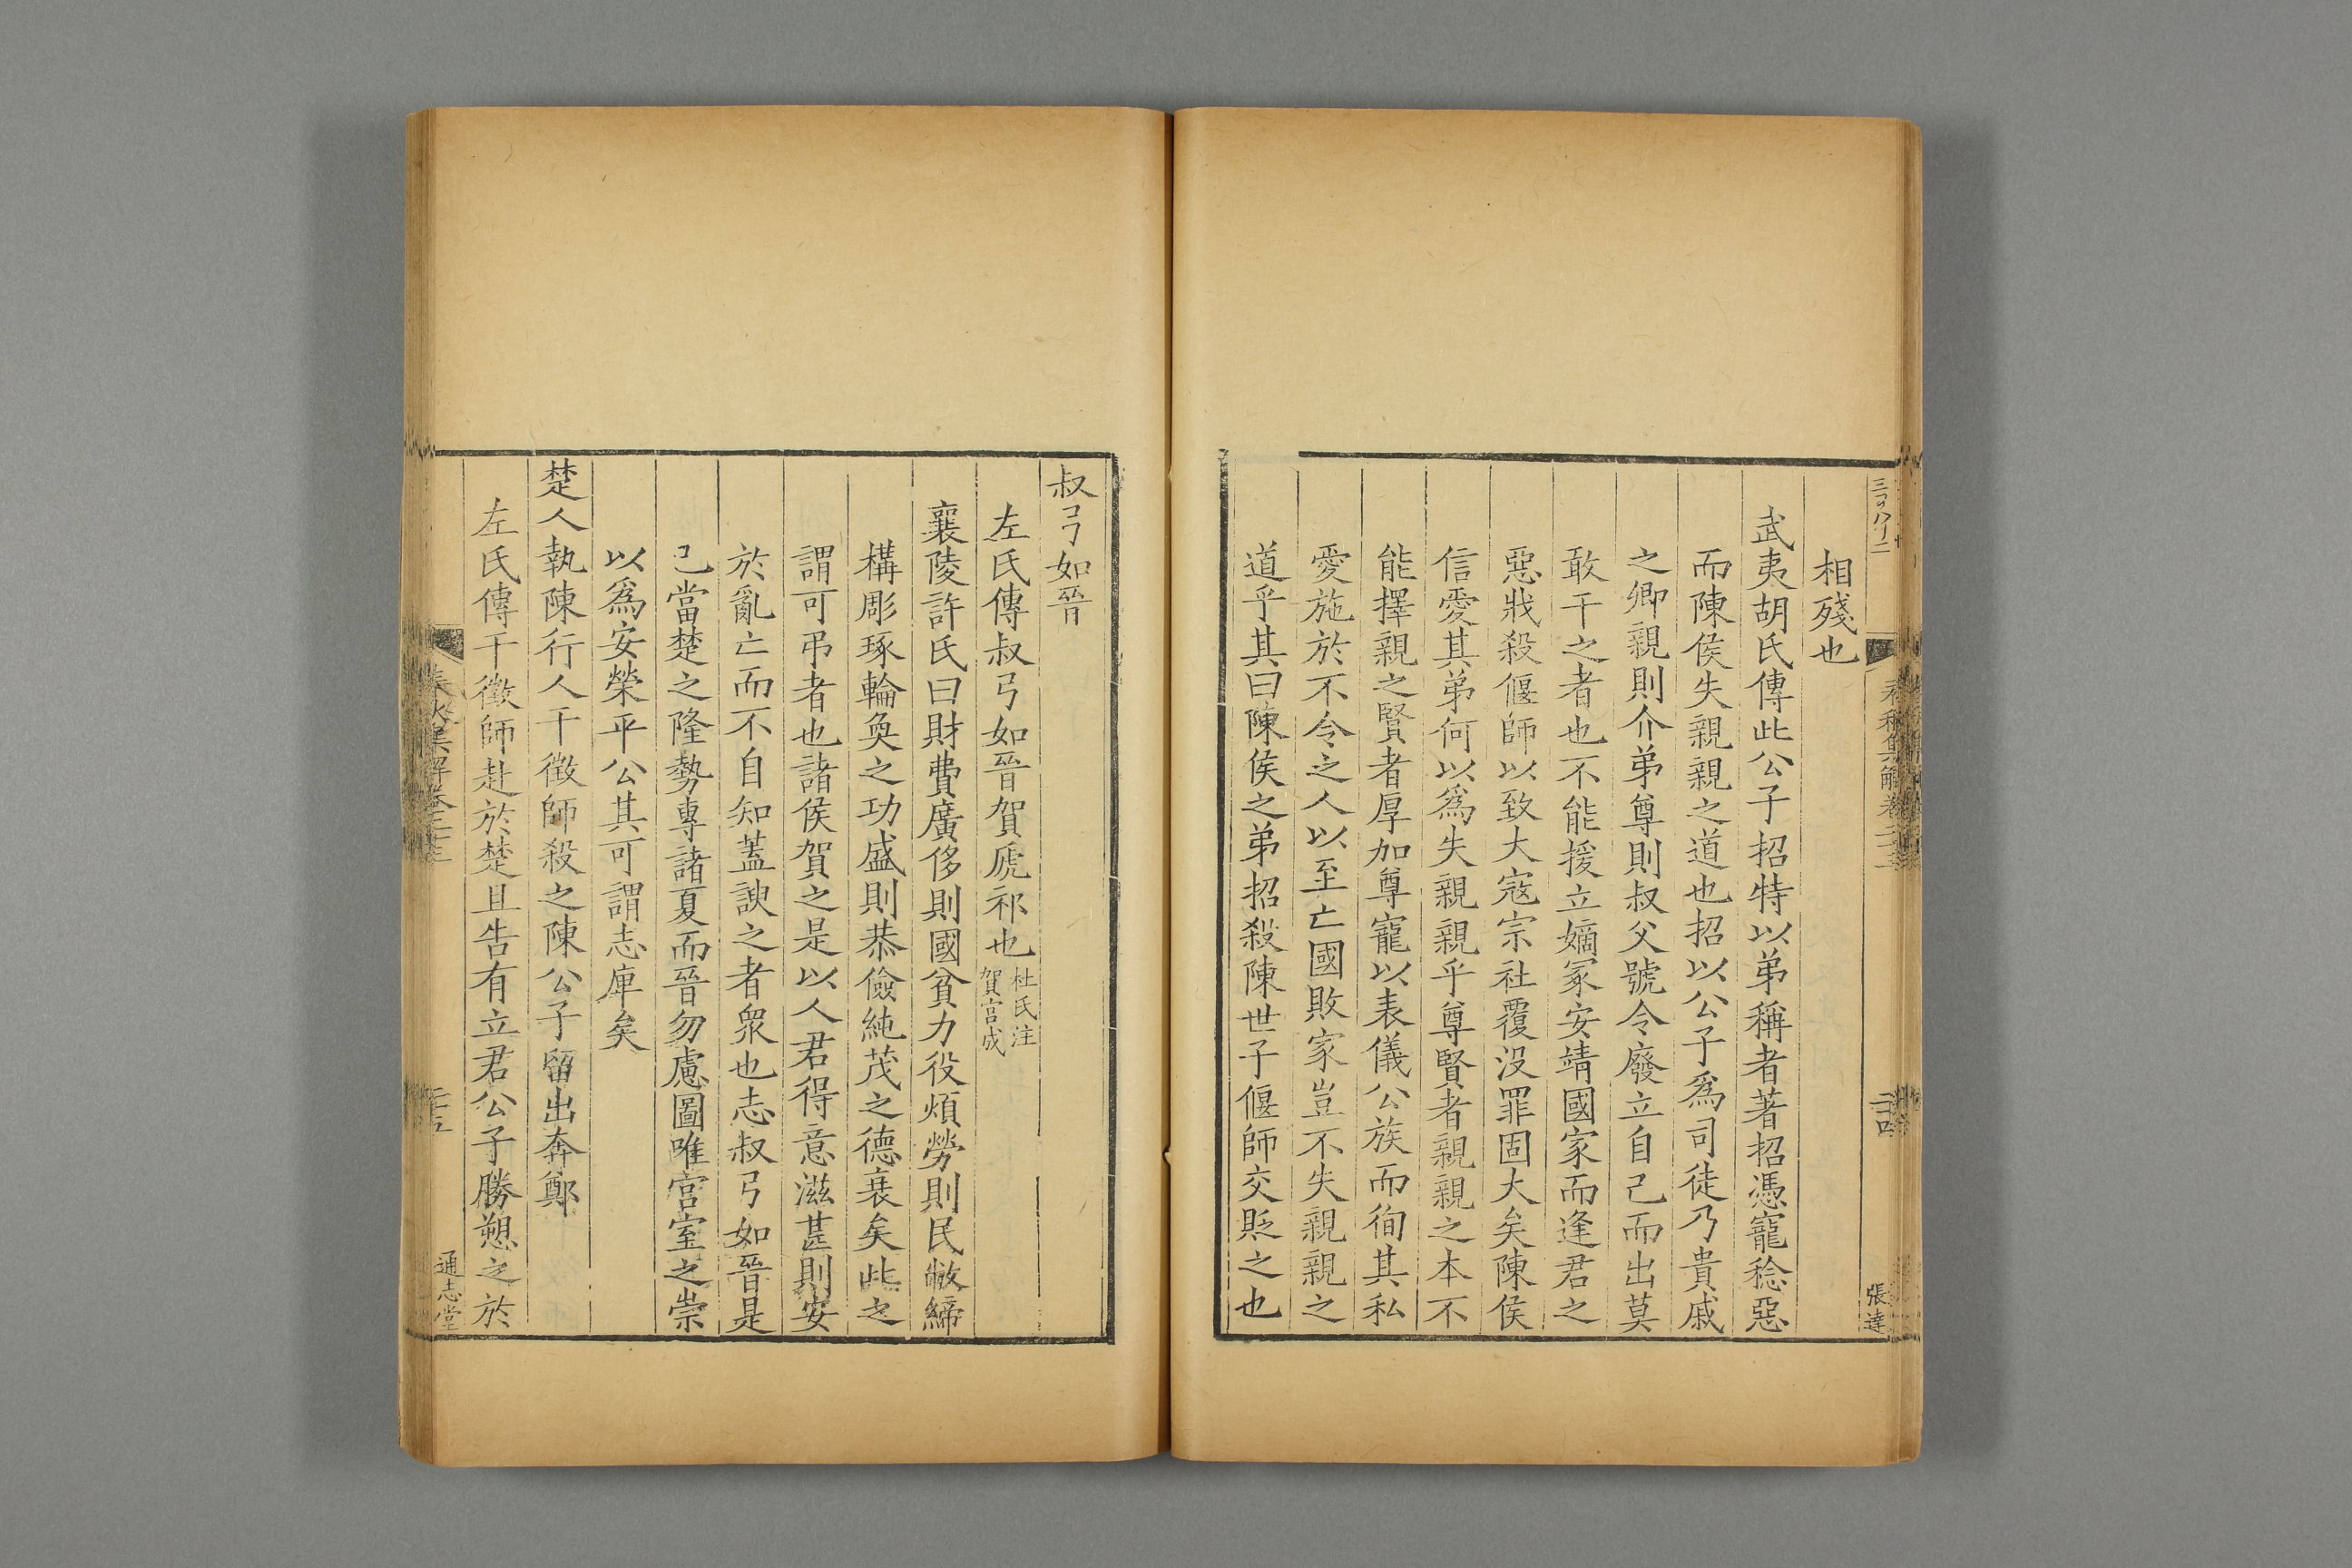 相殘也
武夷胡氏傳此公子招特以弟稱者著招憑寵稔惡
而陳侯失親親之道也招以公子爲司徒乃貴戚
之卿親則介弟尊則叔父號令廢立自己而出莫
敢干之者也不能援立嫡冢安靖國家而逢君之
惡戕殺偃師以致大寇宗社覆没罪固大矣陳侯
信愛其弟何以爲失親親乎尊賢者親親之本不
能擇親之賢者厚加尊寵以表儀公族而徇其私
愛施於不令之人以至亡國敗家豈不失親親之
道乎其曰陳侯之弟招殺陳世子偃師交貶之也
張達
叔弓如晉
左氏傳叔弓如晉賀虒祁也杜氏注
賀宮成
襄陵許氏曰財費廣侈則國貧力役煩勞則民敝締
構彫琢輪奐之功盛則恭儉純茂之德衰矣此之
謂可弔者也諸侯賀之是以人君得意滋甚則安
於亂亡而不自知蓋諛之者眾也志叔弓如晉是
已當楚之隆勢專諸夏而晉勿慮圖唯宮室之崇
以爲安榮平公其可謂志庳矣
楚人執陳行人干徵師殺之陳公子留出奔鄭
左氏傳干徵師赴於楚且告有立君公子勝愬之於
通志堂